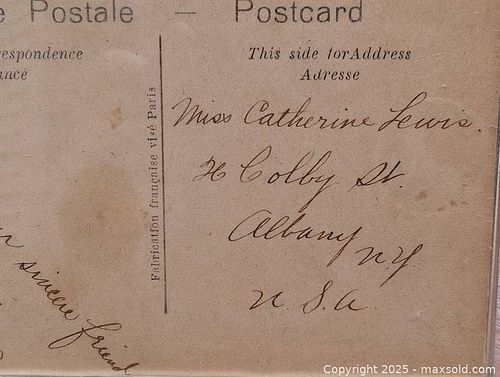 e Postale — Postcard
espondence
ance
This side for Address
Adresse
Fabrication française visé Paris
Miss Catherine Lewis.
26 Colby St.
Albany
N.Y.
U.S.A.
sincere friend
Copyright 2025 - maxsold.com